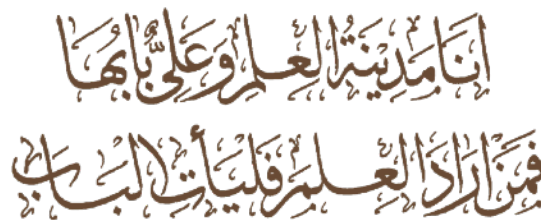 انَا مَدِينَةُ العِلمِ وَ عَلِيٌّ بابُها
فَمَن ارَادَ العِلمَ فَليَأتِ البَابَ